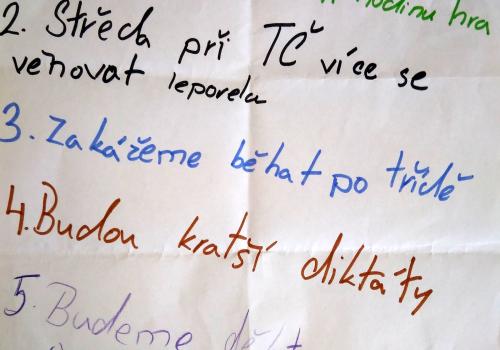 hodinu hra
2. Střecha při TČ více se
věnovat leporelu
3. Zakážeme běhat po třídě
4. Budou kratší diktáty
5. Budeme